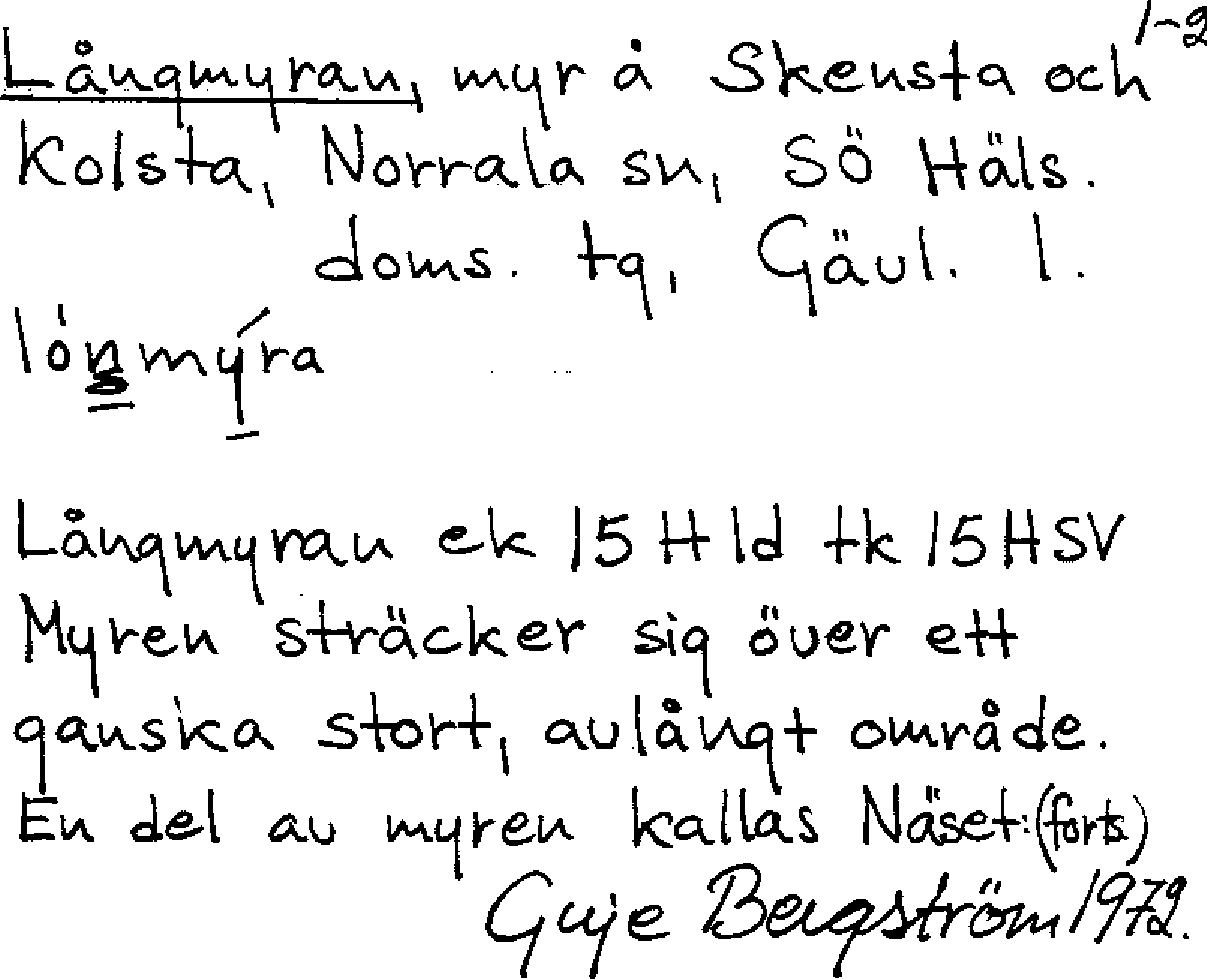 1-2
Långmyran, myr å Skensta och
Kolsta, Norrala sn, Sö Häls.
doms. tg, Gävl. l.
lónmýra
Långmyran ek 15 H ld tk 15 H SV
Myren sträcker sig över ett
ganska stort, avlångt område.
En del av myren kallas Näset: (forts.)
Guje Bergström 1972.